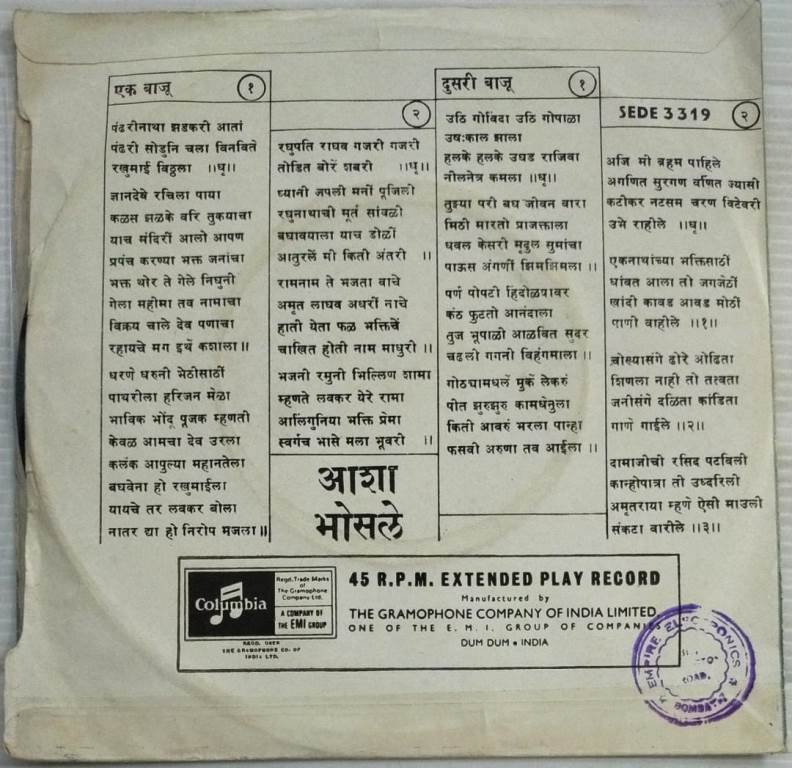 एक बाजू १
पंढरीनाथा झडकरी आतां
पंढरी सोडुनि चला विनविते
रखुमाई विठ्ठला ॥धृ॥
ज्ञानदेवे रचिला पाया
कळस झळके वरि तुकयाचा
याच मंदिरीं आलो आपण
प्रपंच करण्या भक्त जनांचा
भक्त थोर ते गेले निघुनी
गेला महीमा तव नामाचा
विक्रय चाले देव पणाचा
रहायचे मग इथें कशाला॥
धरणे धरुनी भेठीसाठीं
पायरीला हरिजन मेळा
भाविक भोंदू पूजक म्हणती
केवळ आमचा देव उरला
कलंक आपुल्या महानतेला
बघवेना हो रखुमाईला
यायचे तर लवकर बोला
नातर द्या हो निरोप मजला॥
२
रघुपति राघव गजरी गजरी
तोडित बोरें शबरी ॥धृ॥
ध्यानी जपली मनीं पूजिली
रघुनाथाची मूर्त सांवळी
बघावयाला याच डोळीं
आतुरलें मी किती अंतरी ॥
रामनाम ते भजता वाचे
अमृत लाघव अधरीं नाचे
हाती येता फळ भक्तिचें
चाखित होती नाम माधुरी ॥
भजनी रमुनी भिल्लिण शामा
म्हणते लवकर येरे रामा
आलिंगुनिया भक्ति प्रेमा
स्वर्गच भासे मला भूवरी ॥
आशा
भोसले
दुसरी बाजू १
उठि गोविंदा उठि गोपाळा
उषःकाल झाला
हलके हलके उघड राजिवा
नीलनेत्र कमला ॥धृ॥
तुझ्या परी बघ जीवन वारा
मिठी मारतो प्राजक्ताला
धवल केसरी मृदुल सुमांचा
पाऊस अंगणीं झिमझिमला॥
पर्ण पोपटी हिंदोळ्यावर
कंठ फुटतो आनंदाला
तुज भूपाळी आळवित सुंदर
चढली गगनी विहंगमाला॥
गोठयामधलें मुकें लेकरुं
पीत झुरुझुरु कामधेनुला
किती आवरुं भरला पान्हा
फसवी अरुणा तव आईला॥
SEDE 3319 २
अजि मी ब्रह्म पाहिले
अगणित सुरगण वर्णित ज्यासी
कटीकर नटसम चरण विटेवरी
उभे राहीले ॥धृ॥
एकनाथांच्या भक्तिसाठीं
धांवत आला तो जगजेठीं
खांदी कावड आवड मोठी
पाणी वाहीले ॥१॥
चोख्यासंगे ढोरे ओढिता
शिणला नाही तो तत्वता
जनीसंगे दळिता कांडिता
गाणे गाईले ॥२॥
दामाजीची रसिद पटविली
कान्होपात्रा तो उध्दरिली
अमृतराया म्हणे ऐसी माउली
संकटा वारीले ॥३॥
Columbia
Regd. Trade Marks
of
The Gramophone
Company Ltd.
A COMPANY OF
THE EMI GROUP
REGD. USER
THE GRAMOPHONE CO. OF
INDIA LTD.
45 R.P.M. EXTENDED PLAY RECORD
Manufactured by
THE GRAMOPHONE COMPANY OF INDIA LIMITED
ONE OF THE E. M. I. GROUP OF COMPANIES
DUM DUM • INDIA
EMPIRE ELECTRONICS
BOMBAY